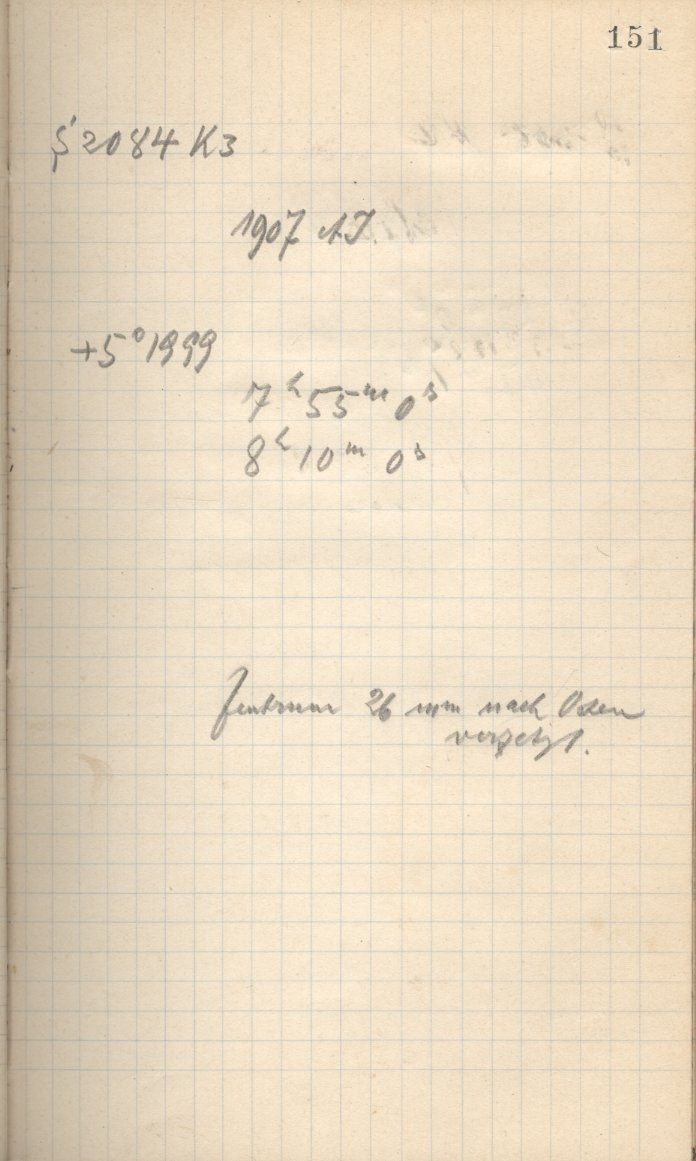 151
§ 2084 K3
1907 AJ.
+5° 1999
7ʰ 55ᵐ 0ˢ
8ʰ 10ᵐ 0ˢ
Zentrum 26 mm nach Osten
versetzt.